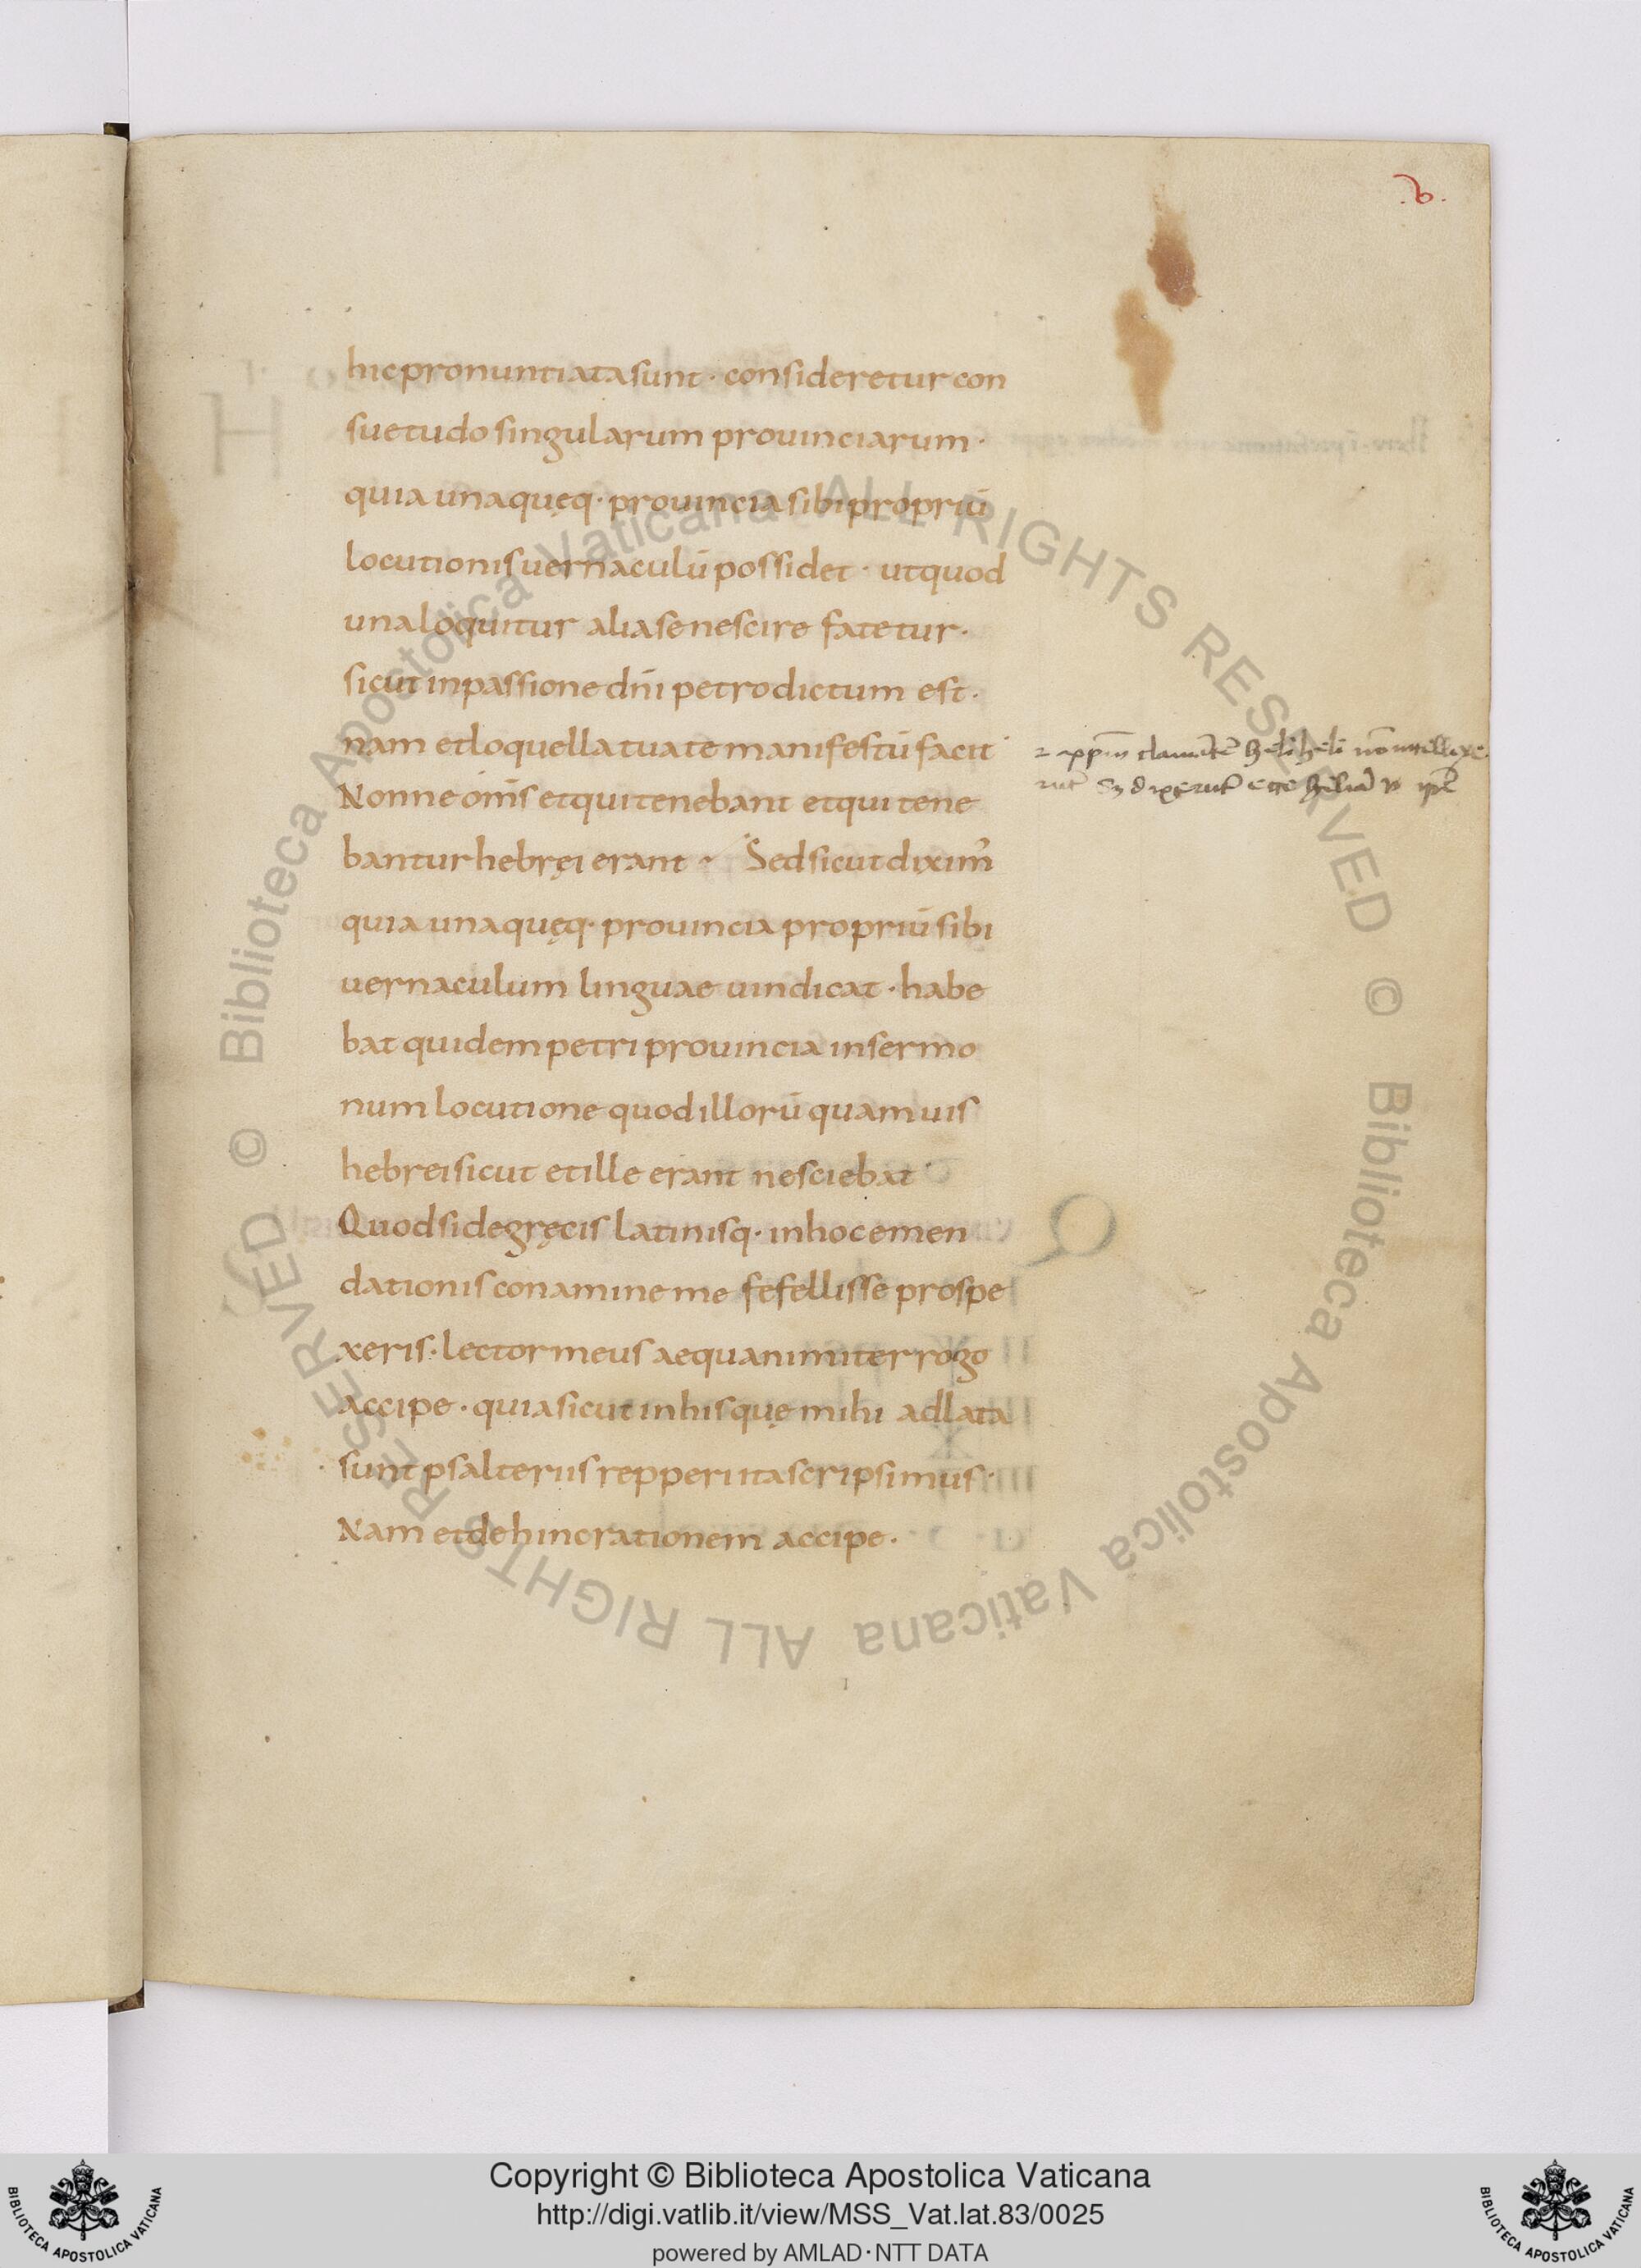 .b.
hic pronuntiata sunt · consideretur con
suetudo singularum prouinciarum ·
quia unaquęq· prouincia sibi propriū
locutionis uernaculū possidet · ut quod
una loquitur alia se nescire fatetur ·
sicut in passione dn̄i petro dictum est ·
nam et loquella tua te manifestū facit
Nonne om̄s et qui tenebant et qui tene
bantur hebręi erant · Sed sicut dixim̉
quia unaquęq· prouincia propriū sibi
uernaculum linguae uindicat · habe
bat quidem petri prouincia in sermo
num locutione quod illorū quamuis
hebrei sicut et ille erant nesciebat
Quod si de gręcis latinisq· in hoc emen
dationis conamine me fefellisse prospe
xeris · lector meus aequanimiter rogo
accipe · quia sicut in his quę mihi adlata
sunt psalteriis repperi ita scripsimus ·
Nam et de hinc rationem accipe ·
heli heli nō intellexe
rūt dixerūt
Q
© Biblioteca Apostolica Vaticana ALL RIGHTS RESERVED © Biblioteca Apostolica Vaticana ALL RIGHTS RESERVED
Copyright © Biblioteca Apostolica Vaticana
http://digi.vatlib.it/view/MSS_Vat.lat.83/0025
powered by AMLAD·NTT DATA
BIBLIOTECA APOSTOLICA VATICANA
BIBLIOTECA APOSTOLICA VATICANA